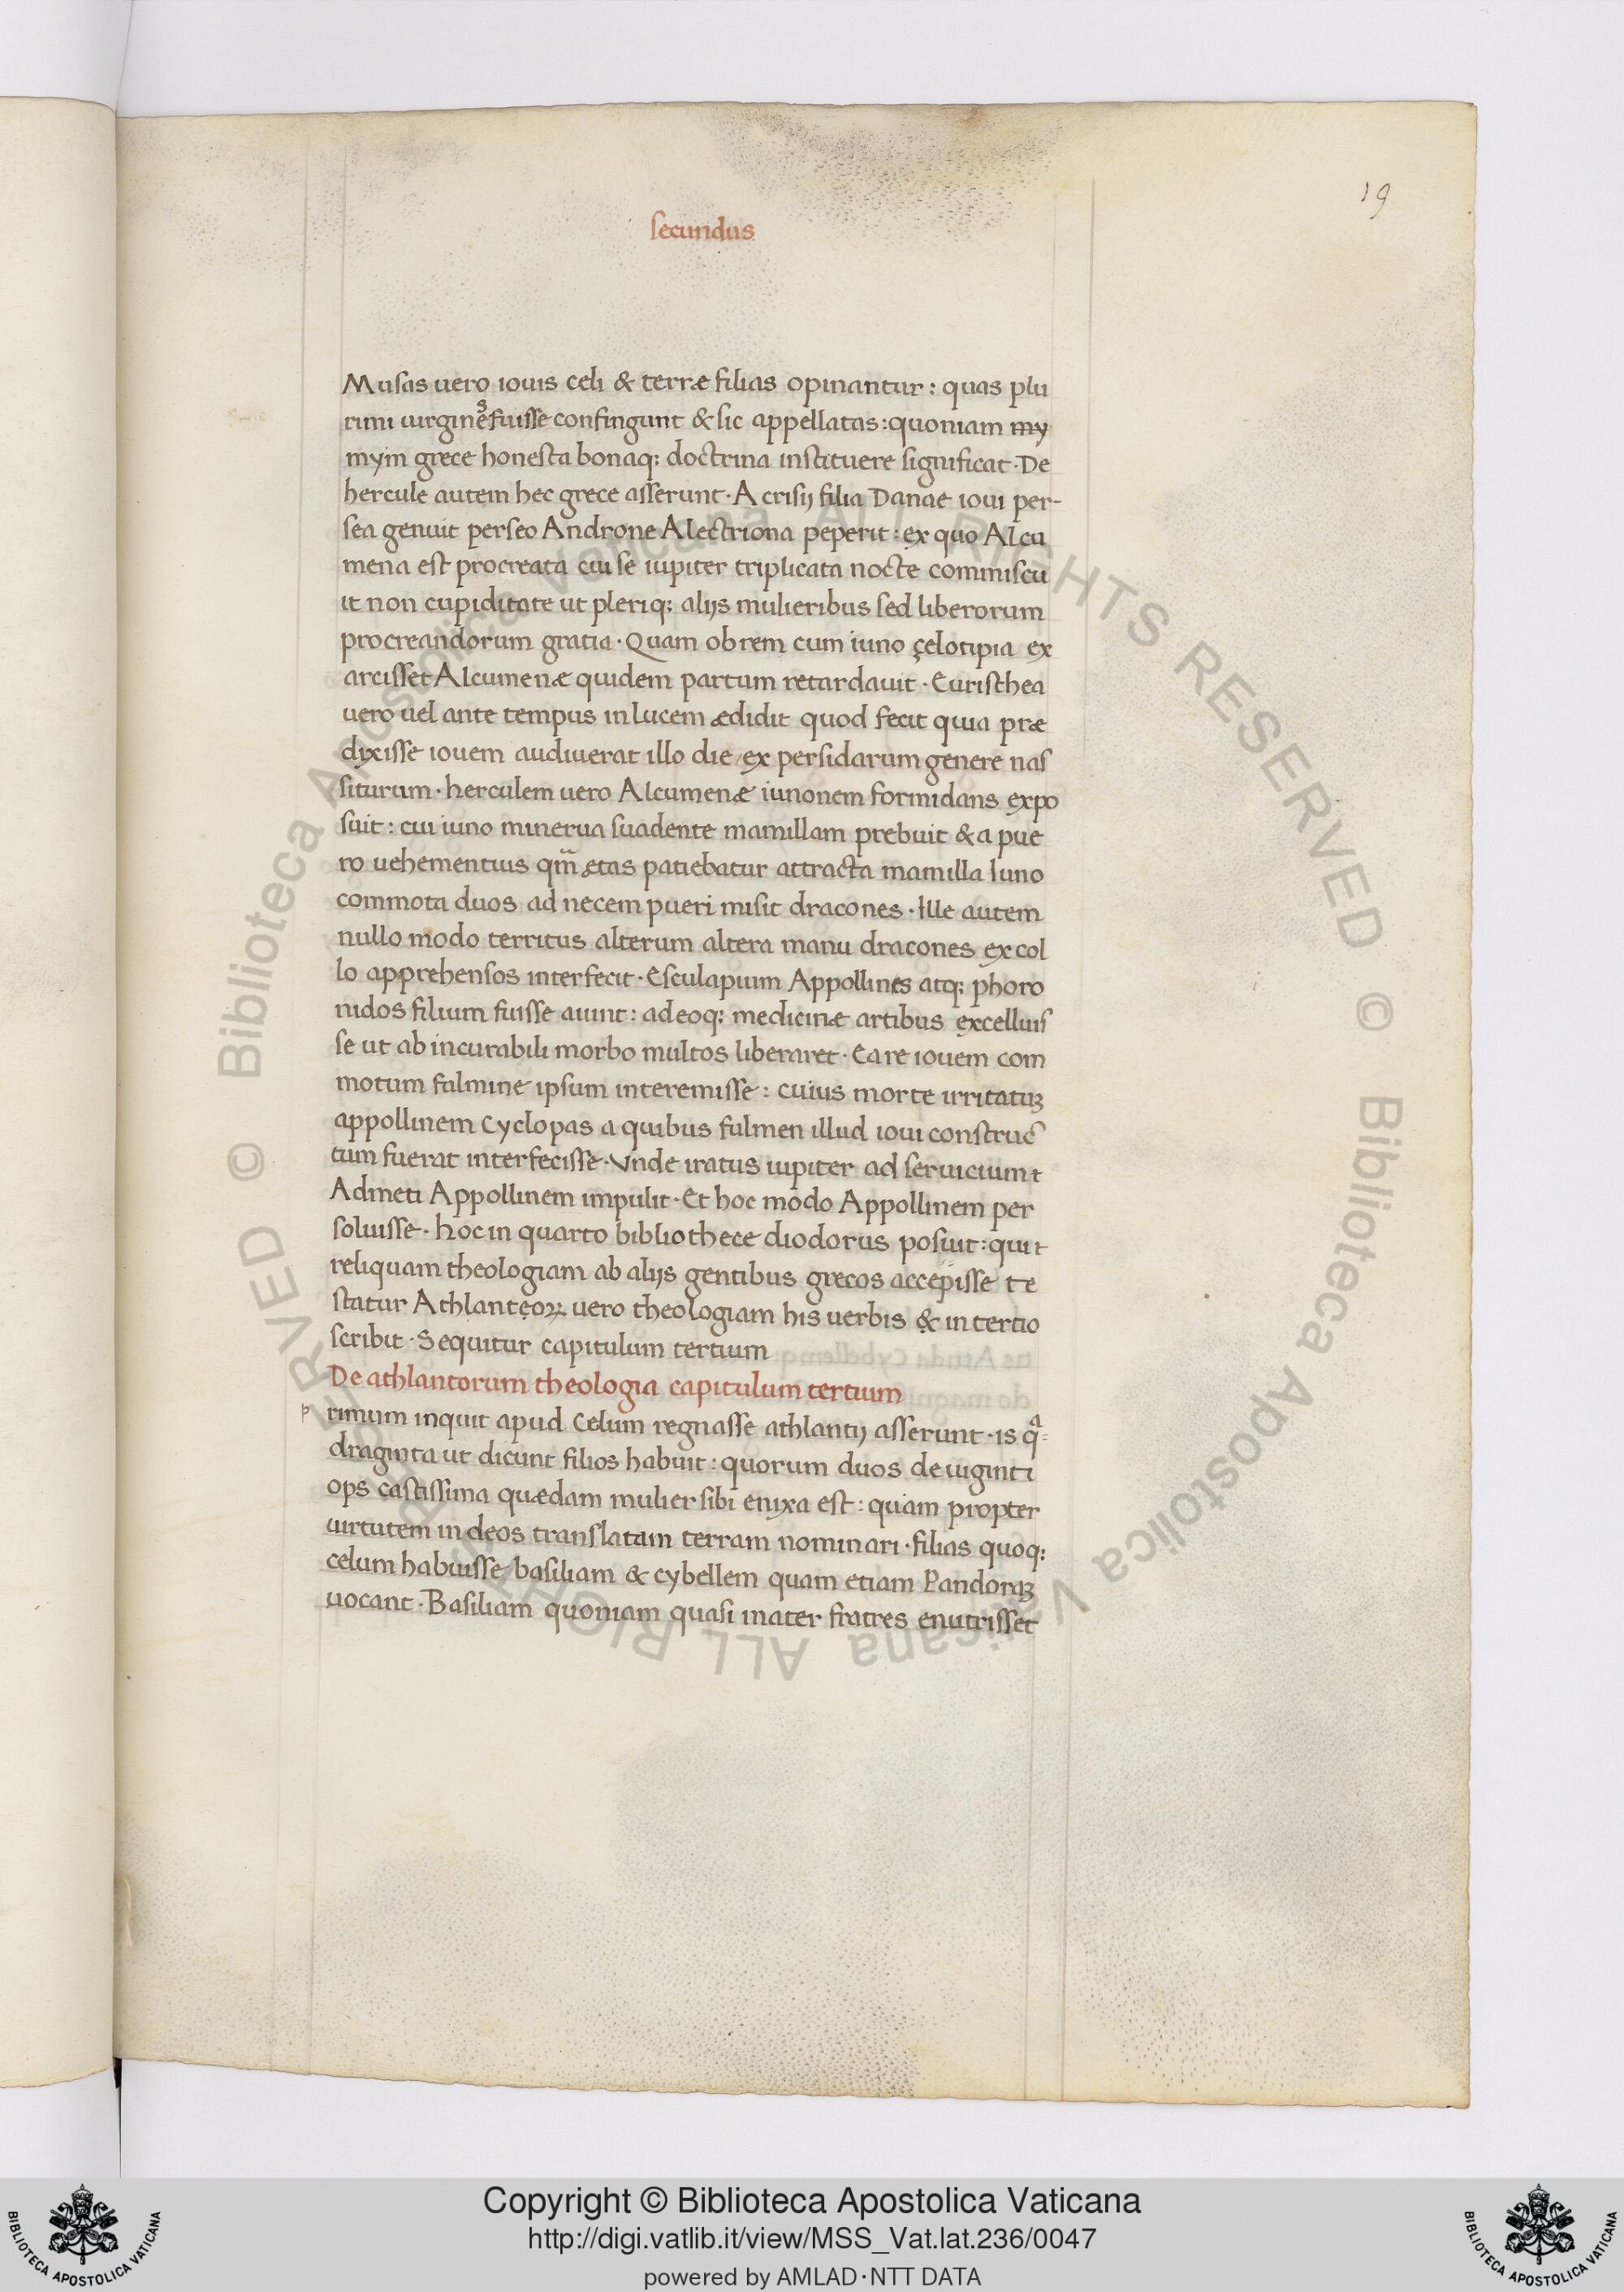 19
secundus
Musas uero iouis celi & terræ filias opinantur: quas plu
rimi uirgines fuisse confingunt & sic appellatas: quoniam my
myin grece honesta bonaq; doctrina instituere significat. De
hercule autem hec grece asserunt. A crisij filia Danae ioui per-
sea genuit perseo Androne Alectriona peperit: ex quo Alcu
mena est procreata cui se iupiter triplicata nocte commiscu
it non cupiditate ut pleriq; alijs mulieribus sed liberorum
procreandorum gratia. Quam obrem cum iuno çelotipia ex
arcisset Alcumenæ quidem partum retardauit. Euristhea
uero uel ante tempus in lucem ædidit quod fecit quia præ
dixisse iouem audiuerat illo die/ex persidarum genere nas
siturum. herculem uero Alcumenæ iunonem formidans expo
suit: cui iuno minerua suadente mamillam prebuit & a pue
ro uehementius qm̄ ętas patiebatur attracta mamilla Iuno
commota duos ad necem pueri misit dracones. Ille autem
nullo modo territus alterum altera manu dracones ex col
lo apprehensos interfecit. Esculapium Appollines atq; phoro
nidos filium fuisse aiunt: adeoq; medicinæ artibus excelluis
se ut ab incurabili morbo multos liberaret. Eare iouem com
motum fulmine ipsum interemisse: cuius morte irritatuꝫ
appollinem Cyclopas a quibus fulmen illud ioui construc
tum fuerat interfecisse. Vnde iratus iupiter ad seruicium
Admeti Appollinem impulit. Et hoc modo Appollinem per
soluisse. hoc in quarto bibliothece diodorus posuit: qui
reliquam theologiam ab alijs gentibus grecos accepisse te
statur Athlanteoꝝ uero theologiam his uerbis & in tertio
scribit. Sequitur capitulum tertium
De athlantorum theologia capitulum tertium
p rimum inquit apud Celum regnasse athlantij asserunt. is qᵃ=
draginta ut dicunt filios habuit: quorum duos de uiginti
ops castissima quædam mulier sibi enixa est: quam propter
uirtutem in deos translatam terram nominari. filias quoq;
celum habuisse basiliam & cybellem quam etiam Pandoraꝫ
uocant. Basiliam quoniam quasi mater fratres enutrisset
© Biblioteca Apostolica Vaticana ALL RIGHTS RESERVED © Biblioteca Apostolica Vaticana ALL RIGHTS RESERVED
Copyright © Biblioteca Apostolica Vaticana
http://digi.vatlib.it/view/MSS_Vat.lat.236/0047
powered by AMLAD·NTT DATA
BIBLIOTECA APOSTOLICA VATICANA
BIBLIOTECA APOSTOLICA VATICANA